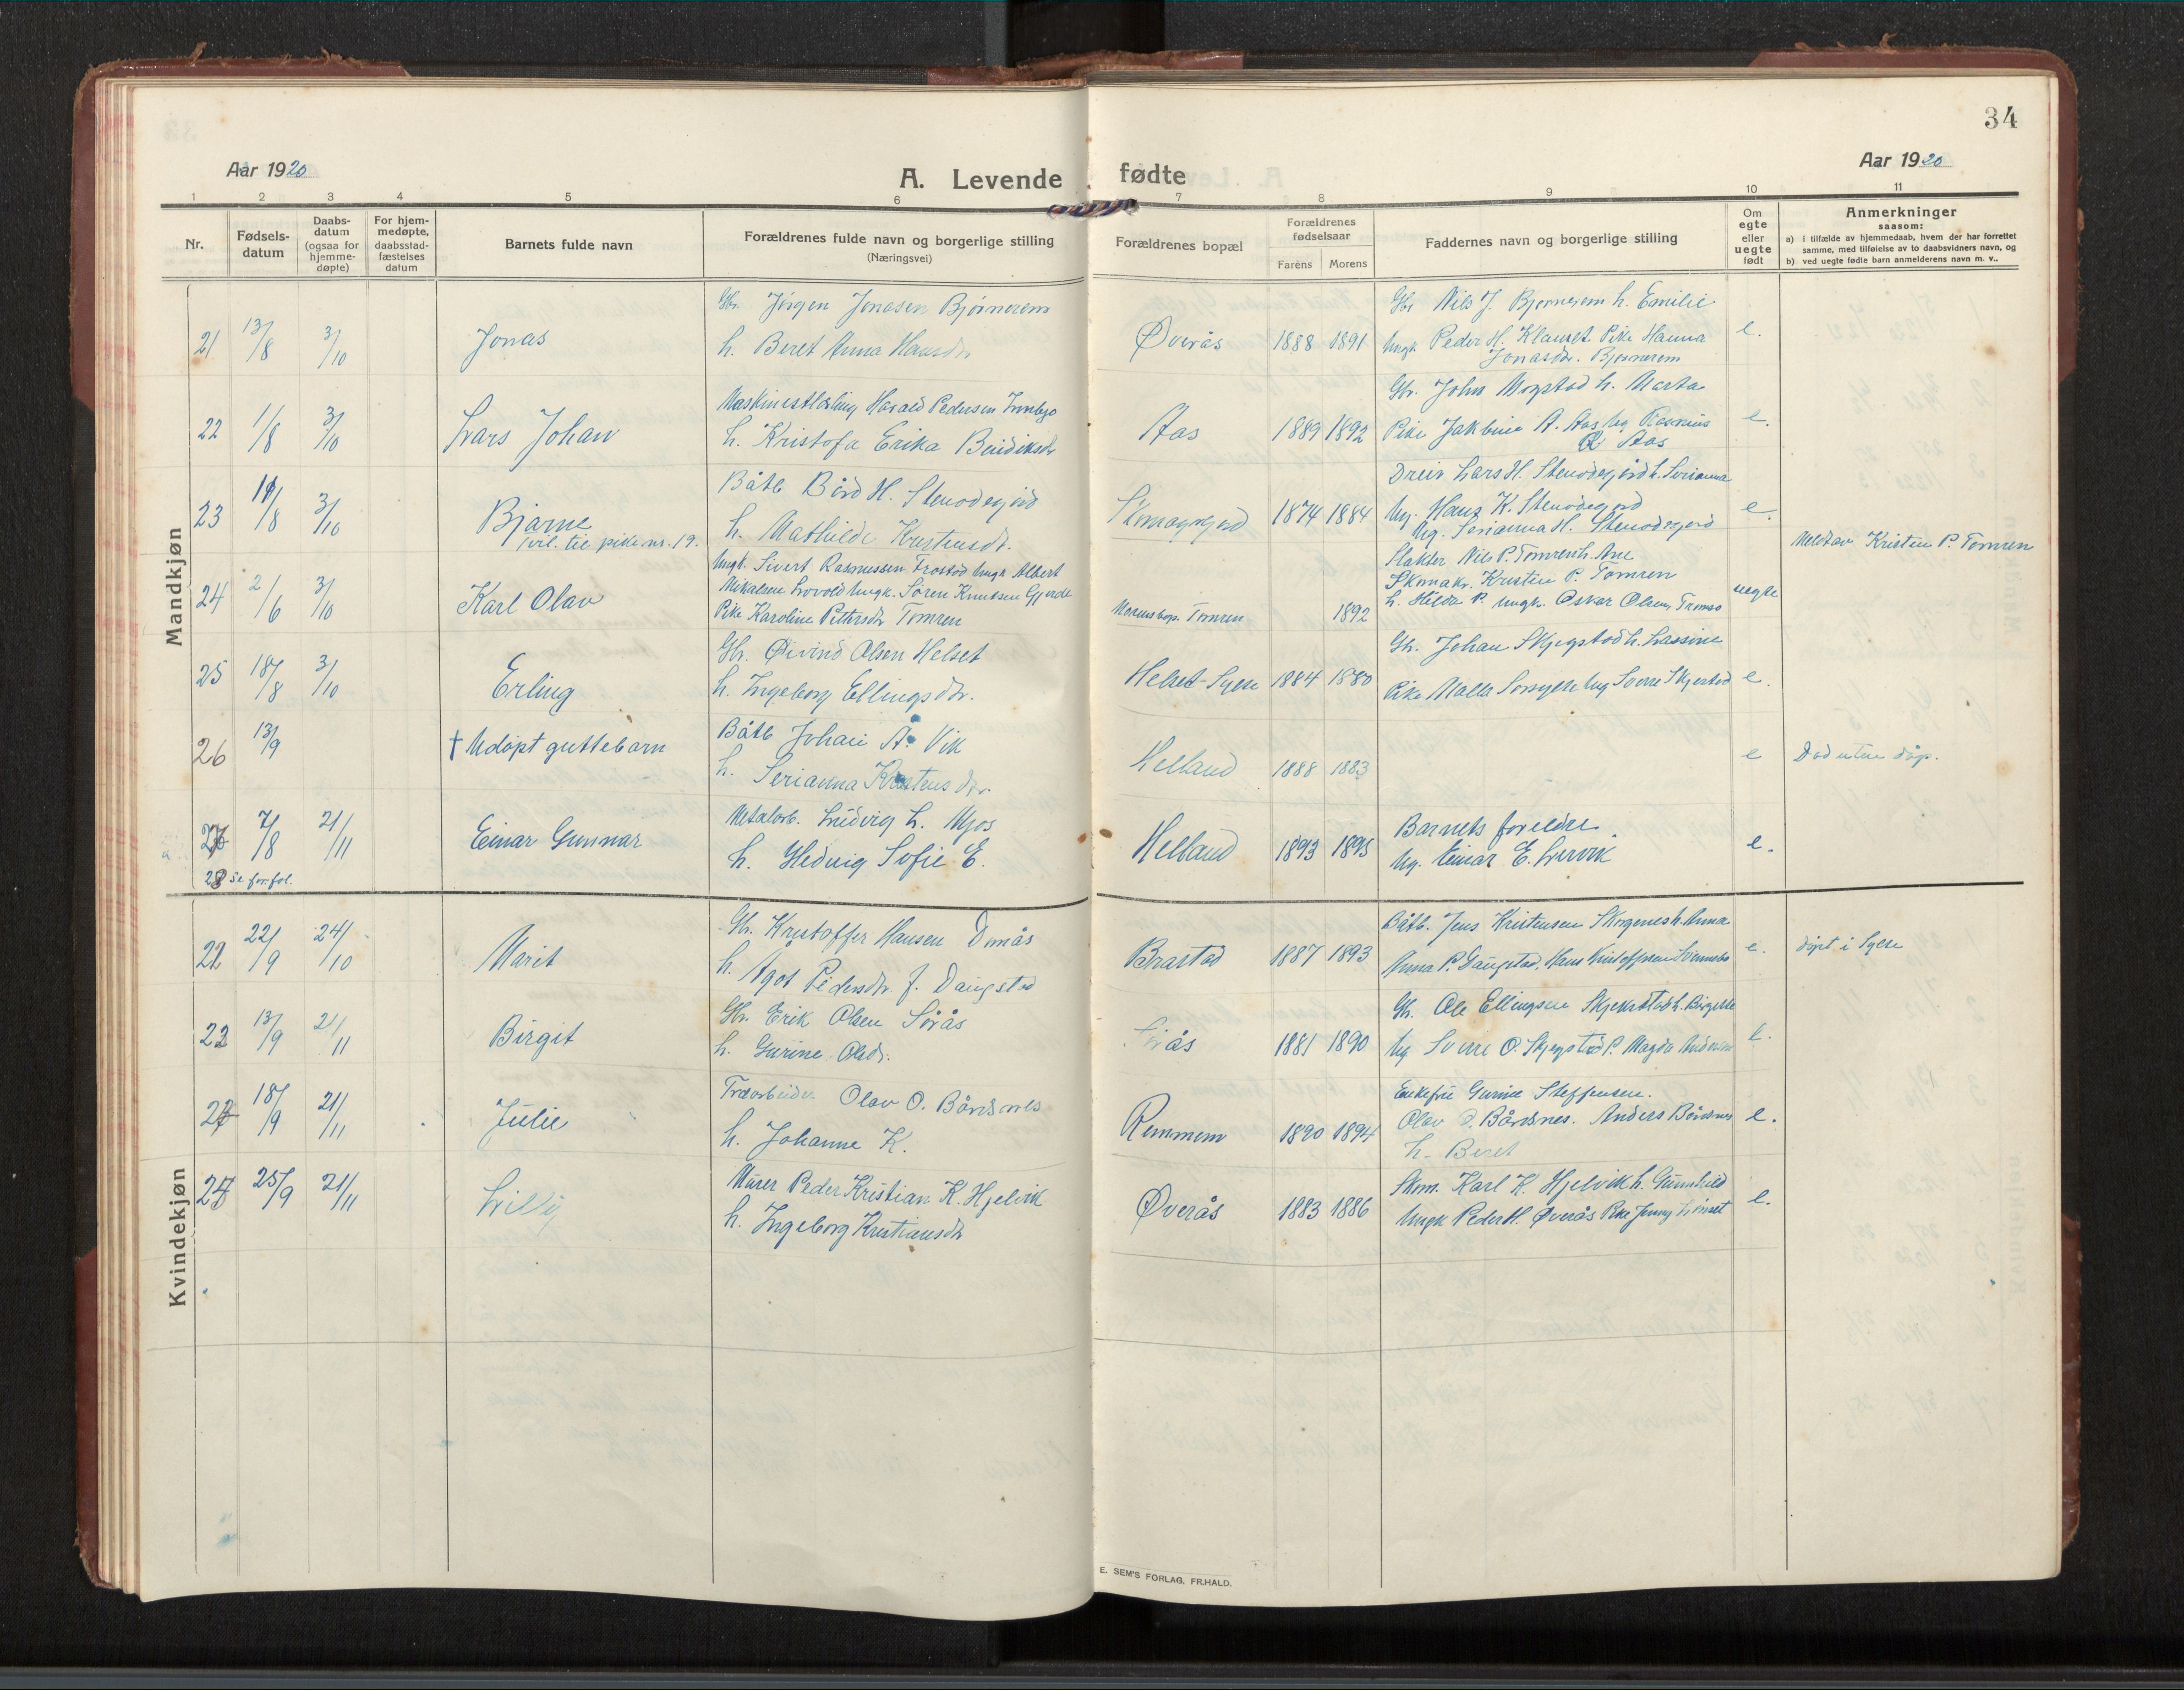 34
Aar 1920
A. Levende fødte
Aar 1920
1 2 3 4 5 6 7 8 9 10 11
Nr.
Fødsels-
datum
Daabs-
datum
(ogsaa for
hjemme-
døpte)
For hjem-
medøpte,
daabsstad-
fæstelses
datum
Barnets fulde navn
Forældrenes fulde navn og borgerlige stilling
(Næringsvei)
Forældrenes bopæl
Forældrenes
fødselsaar
Farens Morens
Faddernes navn og borgerlige stilling
Om
egte
eller
uegte
født
Anmerkninger
saasom:
a) i tilfælde av hjemmedaab, hvem der har forrettet
samme, med tilføielse av to daabsvidners navn, og
b) ved uegte fødte barn anmelderens navn m. v..
Mandkjøn
21 13/8 3/10 Jonas
Gbr. Jørgen Jonasen Bjørnerem
h. Beret Anna Hansdr
Øverås 1888 1891
Gbr Nils J. Bjørnerem h. Emilie
Ungk. Peder H. Klauset. Pike Hanna
Jonasdr. Bjørnerem
e.
22 1/8 3/10 Lars Johan
Harald Pedersen
h. Kristofa Erika Bendiksdr
Aas 1889 1892
Gbr. John Mogstad h. Marta
Pike A. Aas Ung Rasmus
Aas
e.
23 /8 3/10 Bjarne
tvil. til pike nr. 19.
Båtb Bård H.
h. Mathilde
1874 1884
Lars H. h. Serianna
Ug. Hans K.
Ug. Serianna H.
e.
24 2/6 3/10 Karl Olav
Ungk. Sivert Rasmussen Ungk Albert
Mikalsen Ungk. Søren Knutsen Gjerde
Pike Karoline Pettersdr Tomren
Morens bop. Tomren 1892
Slakter Nils P. Tomren h. Ane
Skomakr. Kristen P. Tomren
h. Hilda P. Ungk. Oskar Olsen,
uegte
Meldt av Kristen P. Tomren
25 18/8 3/10 Erling
Gbr. Øivind Olsen Helset
h. Ingeborg Ellingsdr.
Helset - Sylte 1884 1880
Gbr. Johan Skjegstad h. Lassine
Pike Ung Sverre Skjegstad
e.
26 13/9 † Udøpt guttebarn
Båtb Johan A. Vik
h. Serianna
Helland 1888 1883
e
Død uten dåp.
27 7/8 21/11 Einar Gunnar
Metalarb. Ludvig L. Mjøs
h. Hedvig Sofie E.
Helland 1893 1895
Barnets foreldre.
Ug. Einar E. Lervik
e.
28 se for. fol.
Kvindekjøn
21 22/9 24/10 Marit
Gbr. Kristoffer Hansen
h. Agot Pedersdr. f. Daugstad
Brastad 1887 1893
Båtb. Jens Kristensen h. Anna
Anna P. Daugstad, Hans Kristoffersen
e.
døpt i Sylte
22 13/9 21/11 Birgit
Gbr. Erik Olsen Sørås
h. Gurine Olsdr.
Sørås 1881 1890
Gbr. Ole Ellingsen h.
Ug Sverre O. Skjegstad P. Magda
e.
18/9 21/11 Julie
Træarbeider Olav O. Bårdsnes
h. Johanne K.
Remmem 1890 1894
Enkefru Gurine Steffensen.
Olav O. Bårdsnes. Anders Bårdsnes
h. Beret
e.
25/9 21/11 Lilly
Murer Peder Kristian K. Hjelvik
h. Ingeborg Kristiansdr
Øverås 1883 1886
Skom. Karl K. Hjelvik h. Gunnhild
Ungk Peder H. Øverås Pike Jenny
e.
E. SEM'S FORLAG, FR.HALD.